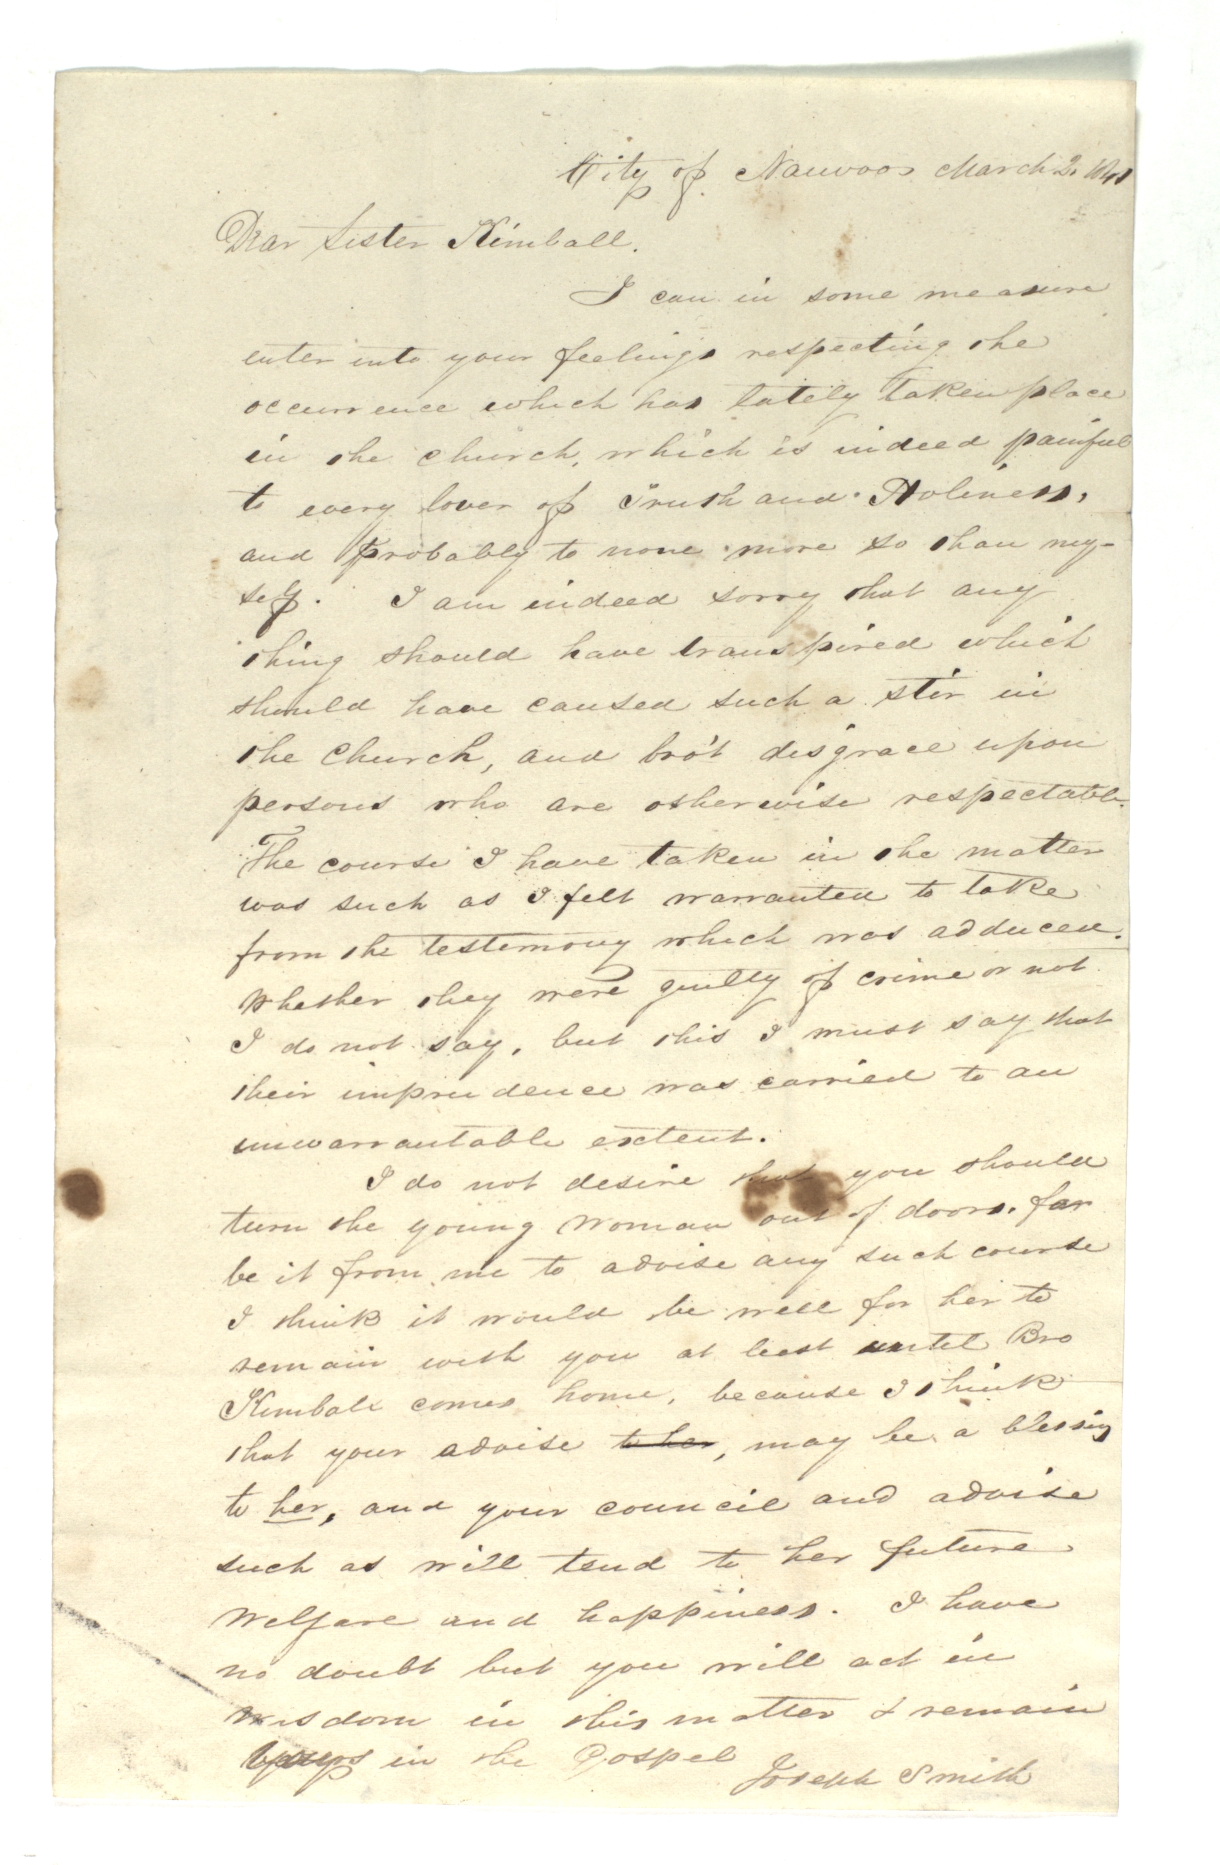 City of Nauvoo March 2. 1841
Dear Sister Kimball.
I can in some measure
enter into your feelings respecting the
occurrence which has lately taken place
in the church, which is indeed painful
to every lover of Truth and Holiness,
and probably to none more so than my-
self. I am indeed sorry that any
thing should have transpired which
should have caused such a stir in
the Church, and bro't disgrace upon
persons who are otherwise respectable.
The course I have taken in the matter
was such as I felt warranted to take
from the testimony which was adduced.
Whether they were guilty of crime or not
I do not say, but this I must say that
their imprudence was carried to an
unwarrantable extent.
I do not desire that you should
turn the young woman out of doors. far
be it from me to advise any such course
I think it would be well for her to
remain with you at least until Bro
Kimball comes home, because I think
that your advise to her, may be a blessing
to her, and your council and advise
such as will tend to her future
Welfare and happiness. I have
no doubt but you will act in
wisdom in this matter & remain
yours in the Gospel
Joseph Smith